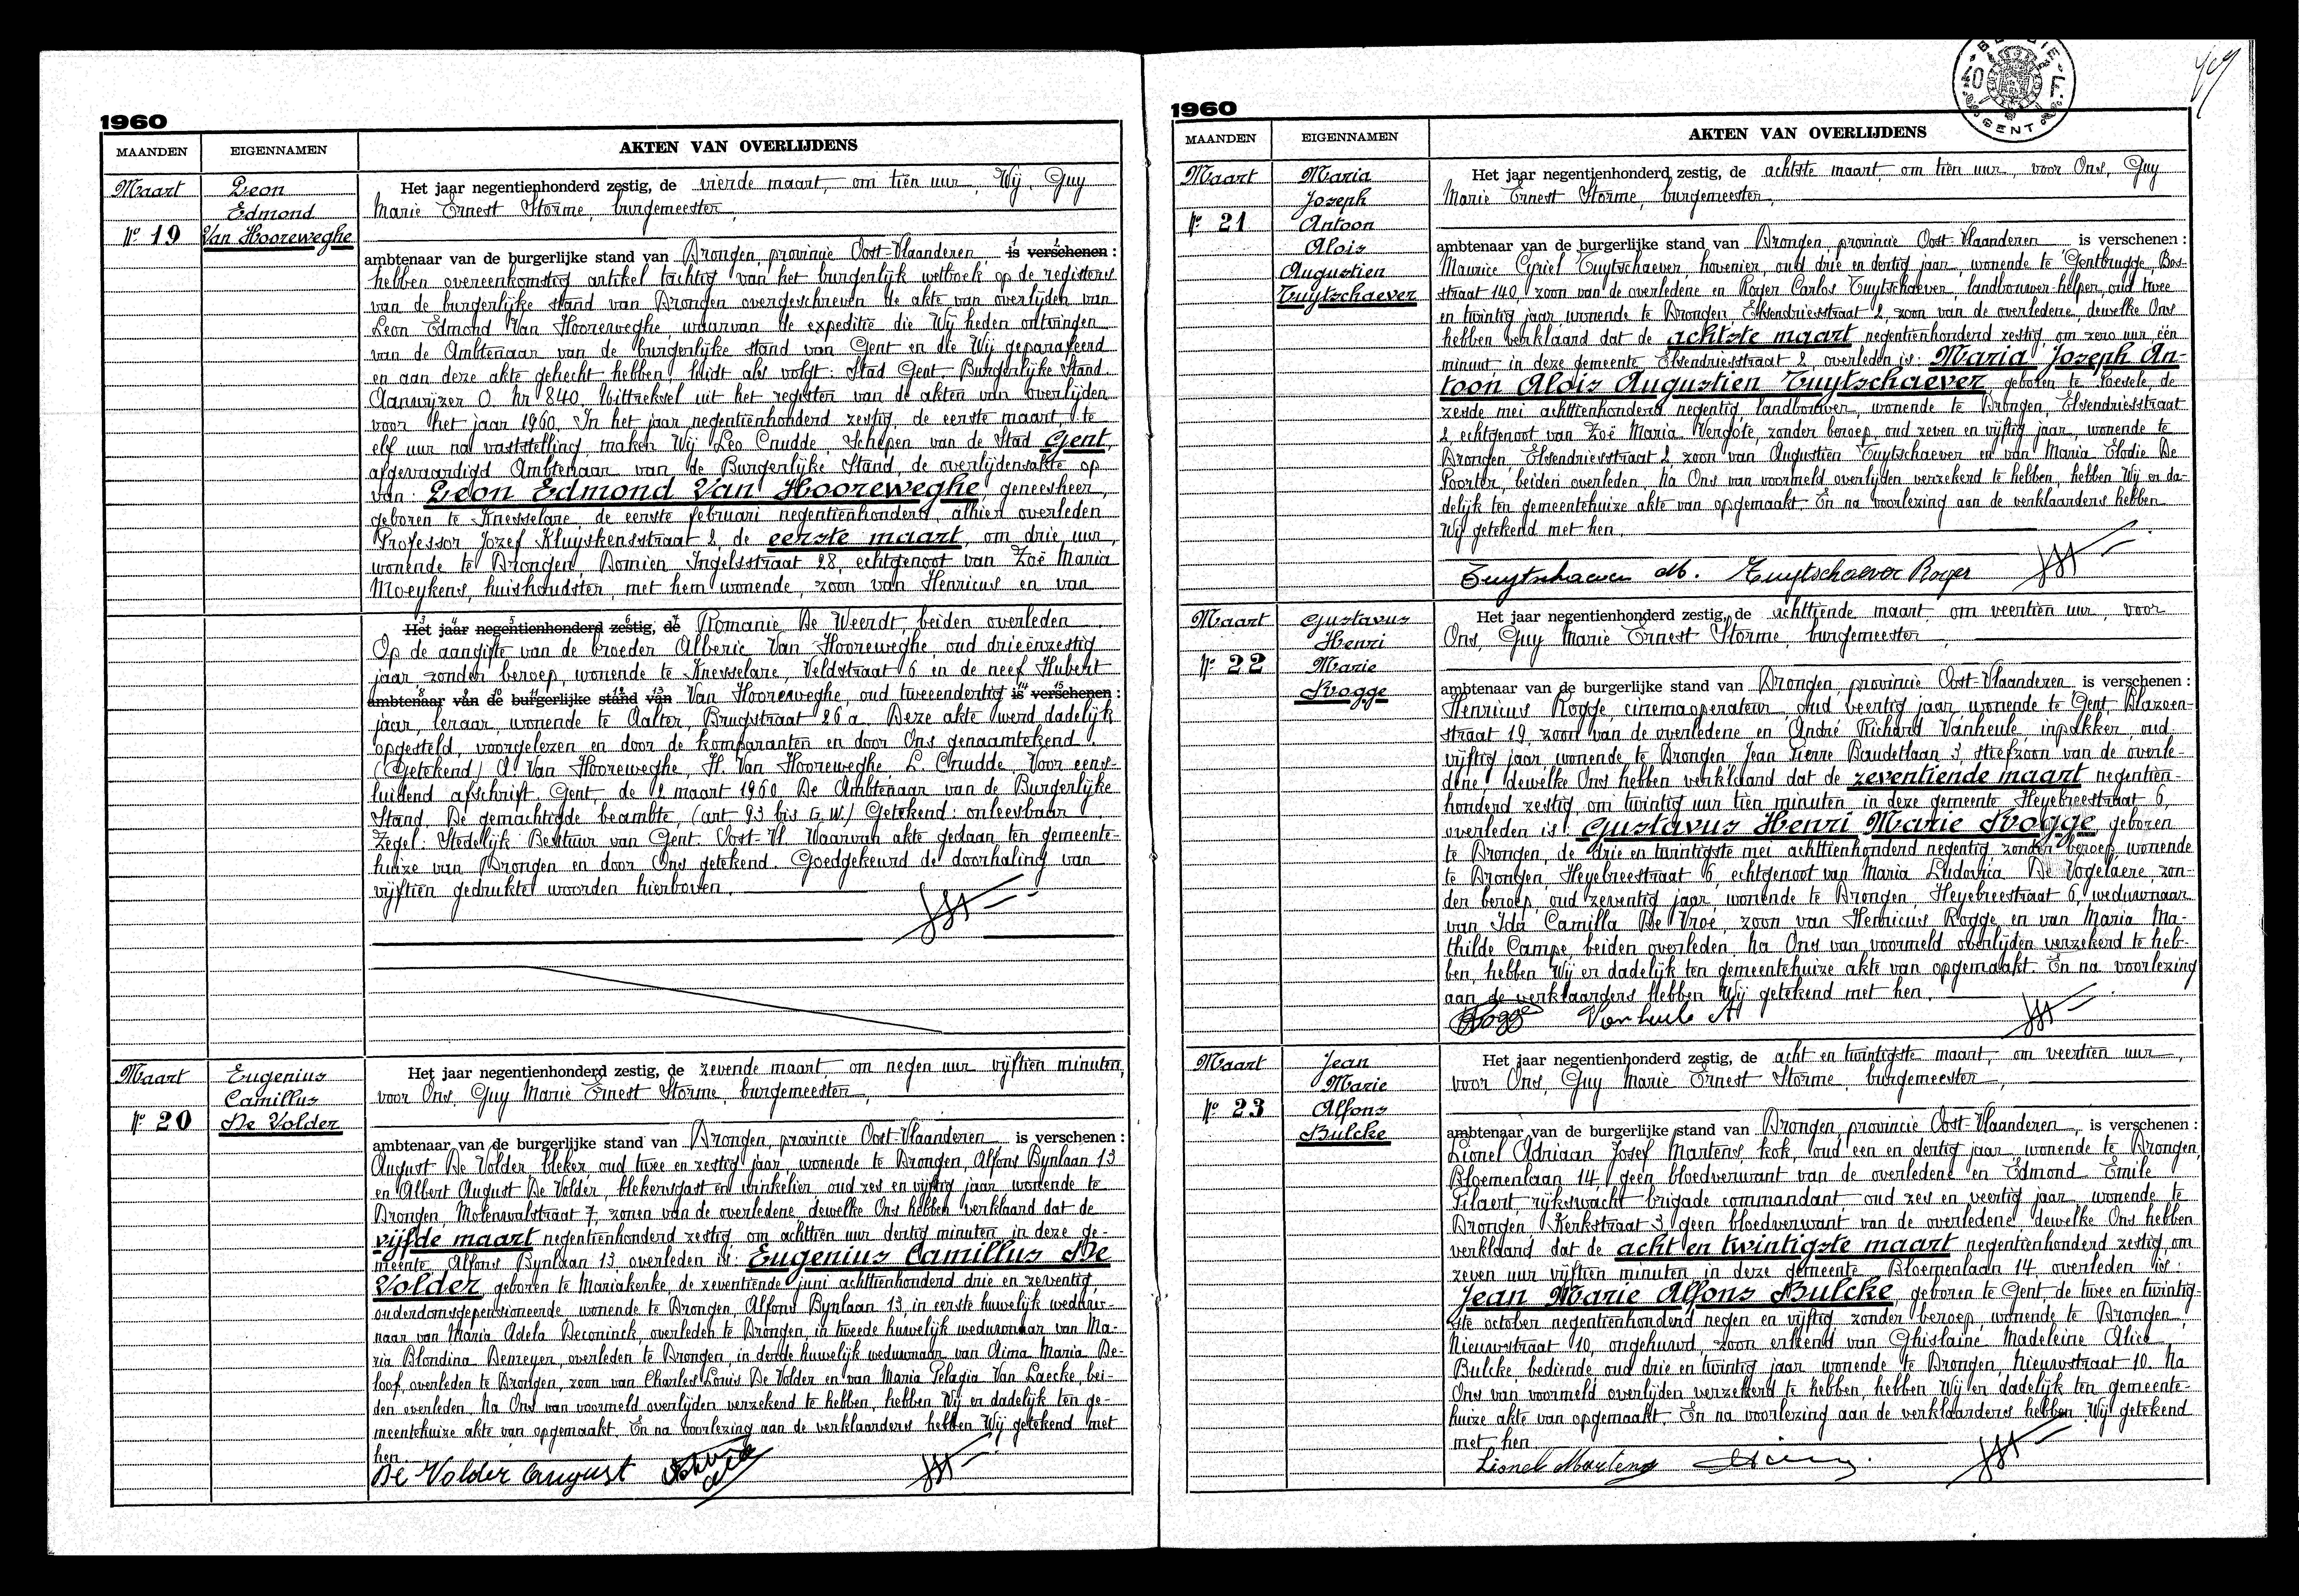 1960
MAANDEN
EIGENNAMEN
AKTEN VAN OVERLIJDENS
Maart
Leon
Edmond
Nº 19
Van Hooreweghe
Het jaar negentienhonderd zestig, de vierde maart, om tien uur, Wij, Guy
Marie Ernest Storme, burgemeester,
ambtenaar van de burgerlijke stand van Drongen, provincie Oost-Vlaanderen, is verschenen:
hebben overeenkomstig artikel tachtig van het burgerlijk wetboek op de registers
van de burgerlijke stand van Drongen overgeschreven de akte van overlijden van
Leon Edmond Van Hooreweghe, waarvan de expeditie die Wij heden ontvingen
van de Ambtenaar van de burgerlijke stand van Gent en die Wij geparafeerd
en aan deze akte gehecht hebben, luidt als volgt: Stad Gent. Burgerlijke Stand.
Aanwijzer O. Nr 840. Uittreksel uit het register van de akten van overlijden
voor het jaar 1960. In het jaar negentienhonderd zestig, de eerste maart, te
elf uur na vaststelling, maken Wij Leo Cnudde, Schepen van de Stad Gent,
afgevaardigd Ambtenaar van de Burgerlijke Stand, de overlijdensakte op
van: Leon Edmond Van Hooreweghe, geneesheer,
geboren te Knesselare, de eerste februari negentienhonderd, alhier overleden
Professor Jozef Kluyskensstraat 2, de eerste maart, om drie uur,
wonende te Drongen, Domien Ingelsstraat 28, echtgenoot van Zoë Maria
Moeykens, huishoudster, met hem wonende, zoon van Henricus en van
Het jaar negentienhonderd zestig, de Romanie De Weerdt, beiden overleden.
Op de aangifte van de broeder Alberic Van Hooreweghe, oud drieënzestig
jaar, zonder beroep, wonende te Knesselare, Veldstraat 6 en de neef Hubert
ambtenaar van de burgerlijke stand van Van Hooreweghe, oud tweeendertig is verschenen:
jaar, leraar, wonende te Aalter, Brugstraat 26 a. Deze akte werd dadelijk
opgesteld, voorgelezen en door de komparanten en door Ons genaamtekend.
(Getekend) A. Van Hooreweghe, H. Van Hooreweghe, L. Cnudde. Voor eens-
luidend afschrift. Gent, de 2 maart 1960 De Ambtenaar van de Burgerlijke
Stand, De gemachtigde beambte, (art. 93 bis G.W.) Getekend: onleesbaar
Zegel: Stedelijk Bestuur van Gent. Oost-Vl. Waarvan akte gedaan ten gemeente-
huize van Drongen en door Ons getekend. Goedgekeurd de doorhaling van
vijftien gedrukte woorden hierboven.
Maart
Eugenius
Camillus
Nº 20
De Volder
Het jaar negentienhonderd zestig, de zevende maart om negen uur vijftien minuten,
voor Ons, Guy Marie Ernest Storme, burgemeester,
ambtenaar van de burgerlijke stand van Drongen, provincie Oost-Vlaanderen is verschenen:
August De Volder, bleker, oud twee en zestig jaar, wonende te Drongen, Alfons Bynlaan 13
en Albert August De Volder, blekersgast en winkelier, oud zes en vijftig jaar wonende te
Drongen, Molenwalstraat 7, zonen van de overledene, dewelke Ons hebben verklaard dat de
vijfde maart negentienhonderd zestig om achttien uur dertig minuten in deze ge-
meente Alfons Bynlaan 13, overleden is: Eugenius Camillus De
Volder, geboren te Mariakerke, de zeventiende juni achttienhonderd drie en zeventig,
ouderdomsgepensioneerde, wonende te Drongen, Alfons Bynlaan 13, in eerste huwelijk weduw-
naar van Maria Adela Deconinck, overleden te Drongen, in tweede huwelijk weduwnaar van Ma-
ria Blondina Demeyer, overleden te Drongen, in derde huwelijk weduwnaar van Aima Maria De-
loof, overleden te Drongen, zoon van Charles Louis De Volder en van Maria Pelagia Van Laecke, bei-
den overleden. Na Ons van voormeld overlijden verzekerd te hebben, hebben Wij er dadelijk ten ge-
meentehuize akte van opgemaakt. En na voorlezing aan de verklaarders hebben Wij getekend met
hen.
De Volder August
1960
MAANDEN
EIGENNAMEN
AKTEN VAN OVERLIJDENS
GENT
Maart
Maria
Jozeph
Nº 21
Antoon
Alois
Augustien
Tuytschaever
Het jaar negentienhonderd zestig, de achtste maart, om tien uur, voor Ons, Guy
Marie Ernest Storme, burgemeester,
ambtenaar van de burgerlijke stand van Drongen, provincie Oost-Vlaanderen is verschenen:
Maurice Cyriel Tuytschaever, hovenier, oud drie en dertig jaar, wonende te Gentbrugge, Bos-
straat 140, zoon van de overledene en Roger Carlos Tuytschaever, landbouwer-helper, oud twee
en twintig jaar, wonende te Drongen, Elsendriesstraat 2, zoon van de overledene, dewelke Ons
hebben verklaard dat de achtste maart negentienhonderd zestig, om zero uur, één
minuut, in deze gemeente Elsendriesstraat 2, overleden is: Maria Jozeph An-
toon Alois Augustien Tuytschaever, geboren te Poesele, de
zesde mei achttienhonderd negentig, landbouwer, wonende te Drongen, Elsendriesstraat
2, echtgenoot van Zoë Maria Vergote, zonder beroep, oud zeven en vijftig jaar, wonende te
Drongen, Elsendriesstraat 2, zoon van Augustien Tuytschaever en van Maria Elodie De
Poorter, beiden overleden. Na Ons van voormeld overlijden verzekerd te hebben, hebben Wij er da-
delijk ten gemeentehuize akte van opgemaakt. En na voorlezing aan de verklaarders hebben
Wij getekend met hen.
Tuytschaever M. Tuytschaever Roger
Maart
Gustavus
Henri
Nº 22
Marie
Rogge
Het jaar negentienhonderd zestig, de achttiende maart om veertien uur, voor
Ons, Guy Marie Ernest Storme, burgemeester,
ambtenaar van de burgerlijke stand van Drongen, provincie Oost-Vlaanderen is verschenen:
Henricus Rogge, cinemaoperateur, oud veertig jaar, wonende te Gent, Blazoen-
straat 19, zoon van de overledene en André Richard Vanheule, inpakker, oud
vijftig jaar, wonende te Drongen, Jean Pierre Baudetlaan 3, stiefzoon van de overle-
dene, dewelke Ons hebben verklaard dat de zeventiende maart negentien-
honderd zestig, om twintig uur tien minuten in deze gemeente Heyebreestraat 6,
overleden is: Gustavus Henri Marie Rogge, geboren
te Drongen, de drie en twintigste mei achttienhonderd negentig zonder beroep, wonende
te Drongen, Heyebreestraat 6, echtgenoot van Maria Ludovica De Vogelaere, zon-
der beroep, oud zeventig jaar, wonende te Drongen, Heyebreestraat 6, weduwnaar
van Ida Camilla De Vroe, zoon van Henricus Rogge en van Maria Ma-
thilde Campe, beiden overleden. Na Ons van voormeld overlijden verzekerd te heb-
ben, hebben Wij er dadelijk ten gemeentehuize akte van opgemaakt. En na voorlezing
aan de verklaarders hebben Wij getekend met hen.
Rogge Vanheule A
Maart
Jean
Marie
Nº 23
Alfons
Bulcke
Het jaar negentienhonderd zestig, de acht en twintigste maart, om veertien uur,
voor Ons, Guy Marie Ernest Storme, burgemeester,
ambtenaar van de burgerlijke stand van Drongen, provincie Oost-Vlaanderen, is verschenen:
Lionel Adriaan Josef Martens, kok, oud een en dertig jaar, wonende te Drongen,
Bloemenlaan 14, geen bloedverwant van de overledene en Edmond Emile
Pilaert, rijkswacht brigade commandant, oud zes en veertig jaar, wonende te
Drongen Kerkstraat 3, geen bloedverwant van de overledene, dewelke Ons hebben
verklaard dat de acht en twintigste maart negentienhonderd zestig, om
zeven uur vijftien minuten in deze gemeente Bloemenlaan 14, overleden is:
Jean Marie Alfons Bulcke, geboren te Gent, de twee en twintig-
ste october negentienhonderd negen en vijftig zonder beroep, wonende te Drongen,
Nieuwstraat 10, ongehuwd, zoon erkend van Ghislaine Madeleine Alice
Bulcke, bediende, oud drie en twintig jaar wonende te Drongen, Nieuwstraat 10. Na
Ons van voormeld overlijden verzekerd te hebben, hebben Wij er dadelijk ten gemeente-
huize akte van opgemaakt. En na voorlezing aan de verklaarders hebben Wij getekend
met hen.
Lionel Martens